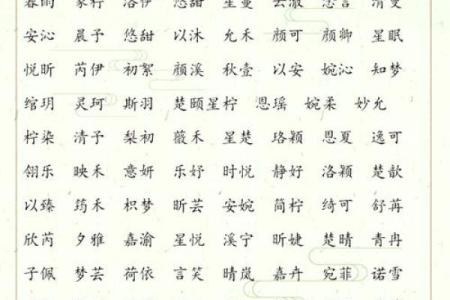 安沁 晨予 悠甜 以沐 允禾 颜可 颜卿 星眠
悦昕 芮伊 初絮 颜溪 秋壹 以安 婉沁 知梦
绾玥 灵珂 斯羽 楚颐 星柠 恩瑶 婉柔 妙允
柠染 清予 梨初 薇禾 星楚 珞颖 恩夏 逸可
翎乐 映禾 意妍 乐妤 时悦 静好 洛颖 楚歆
以臻 筠禾 枳梦 昕芸 安婉 简柠 绮可 舒苒
欣芮 夕雅 嘉渝 星悦 溪宁 昕婕 楚晴 青冉
子佩 梦芸 荷依 言笑 晴岚 嘉卉 宛菲 诺雪